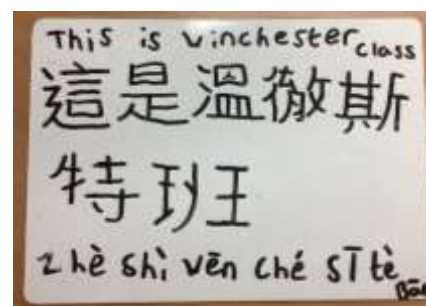 This is Vinchester class
這是溫徹斯
特班
zhè shì vēn ché sī tè Bān